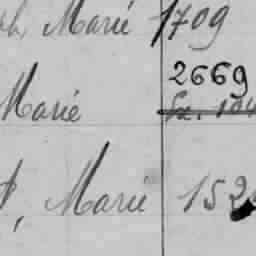 Marié 1709
2669
Marié
Marié 152